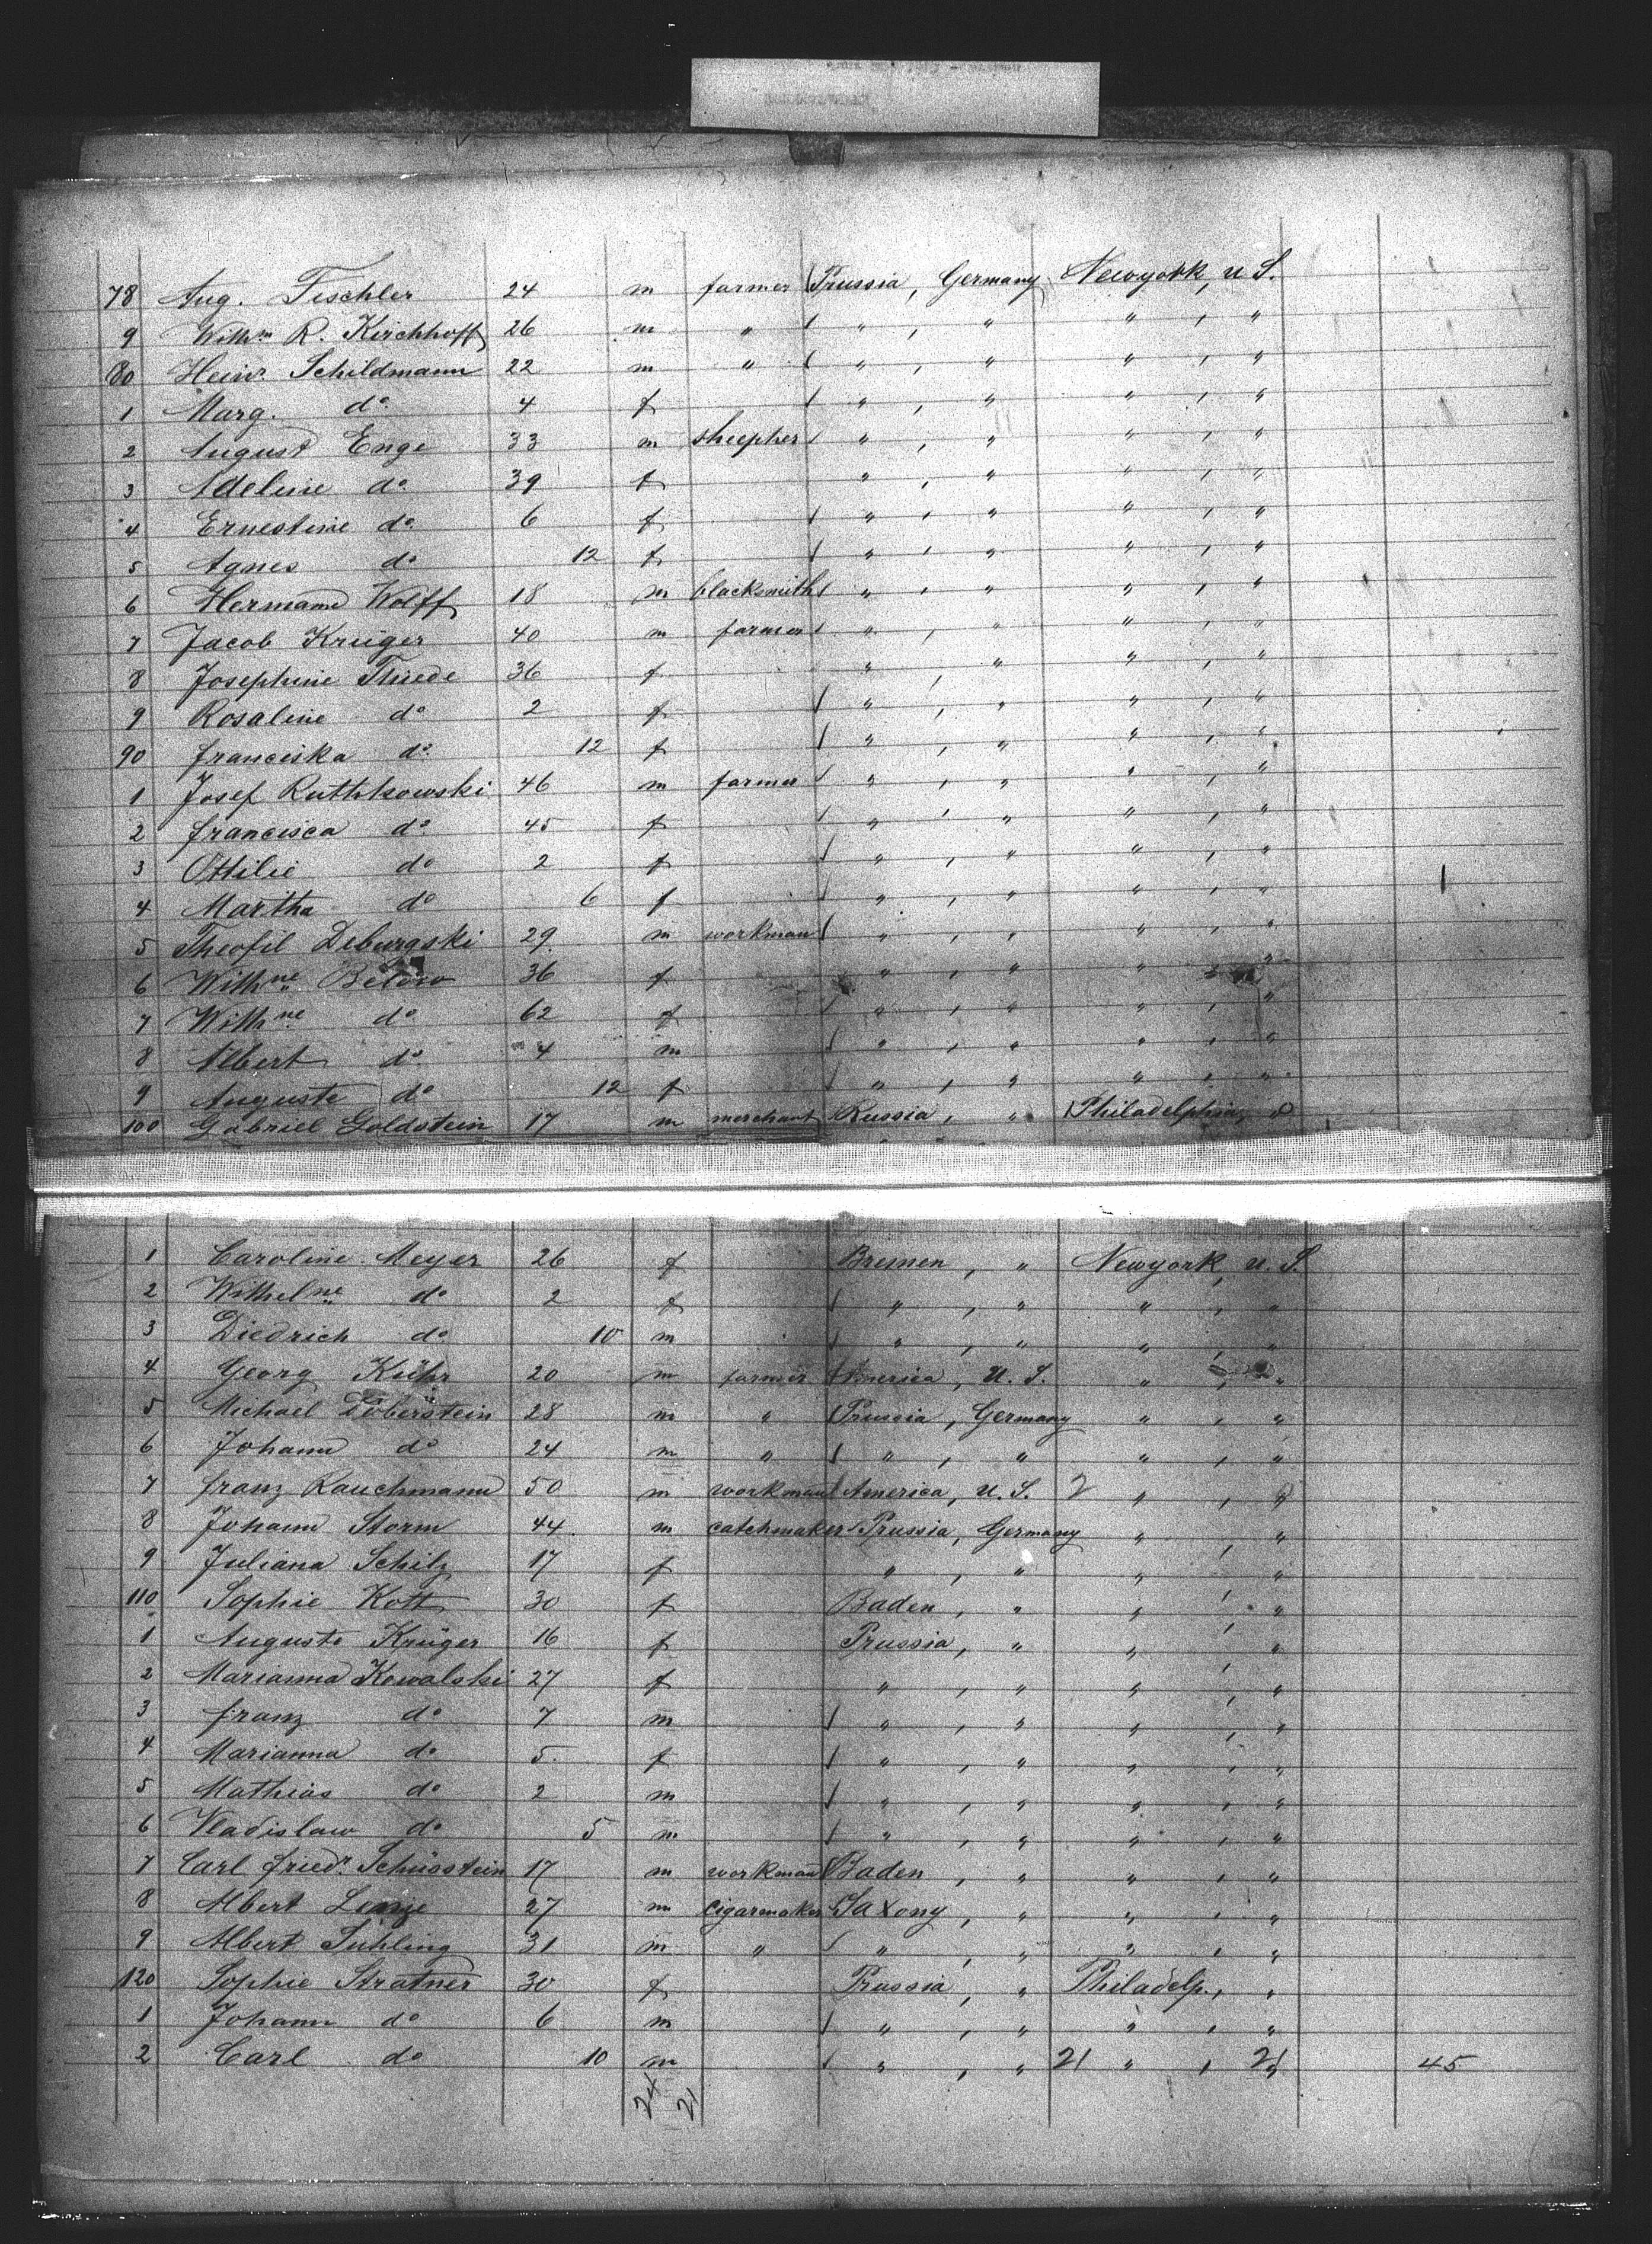 78 Aug. Tischler 24 m farmer Prussia, Germany Newyork, U.S.
9 Wilhm R. Kirchhoff 26 m " " , " " , "
80 Heinr. Schildmann 22 m " " , " " , "
1 Marg. do 4 f " , " " , "
2 August Enge 33 m sheepher " , " " , "
3 Adeline do 39 f " , " " , "
4 Ernestine do 6 f " , " " , "
5 Agnes do 12 f " , " " , "
6 Hermann Wolff 18 m blacksmith " , " " , "
7 Jacob Krüger 40 m farmer " , " " , "
8 Josephine Thiede 36 f " , " " , "
9 Rosaline do 2 f " , " " , "
90 Franciska do 12 f " , " " , "
1 Josef Ruthkowski 46 m farmer " , " " , "
2 Francisca do 45 f " , " " , "
3 Ottilie do 2 f " , " " , "
4 Martha do 6 f " , " " , "
5 Theofil Deburgski 29 m workman " , " " , "
6 Wilhne Below 36 f " , " " , "
7 Wilhne do 62 f " , " " , "
8 Albert do 4 m " , " " , "
9 Auguste do 12 f " , " " , "
100 Gabriel Goldstein 17 m merchant Russia, " Philadelphia, "
1 Caroline Meyer 26 f Bremen, " Newyork, U.S.
2 Wilhelne do 2 f " , " " , "
3 Diedrich do 10 m " , " " , "
4 Georg Kühr 20 m farmer America, U.S. " , "
5 Michael Döberstein 28 m " Prussia, Germany " , "
6 Johann do 24 m " " , " " , "
7 Franz Rauchmann 50 m workman America, U.S. 2 " , "
8 Johann Storm 44 m catchmaker Prussia, Germany " , "
9 Juliana Schilz 17 f " , " " , "
110 Sophie Kott 30 f Baden, " " , "
1 Auguste Krüger 16 f Prussia, " " , "
2 Marianna Kowalski 27 f " , " " , "
3 Franz do 7 m " , " " , "
4 Marianna do 5 f " , " " , "
5 Mathias do 2 m " , " " , "
6 Vladislaw do 5 m " , " " , "
7 Carl Friedr. Schüsstein 17 m workman Baden, " " , "
8 Albert 27 m cigarmaker Saxony, " " , "
9 Albert Suhling 31 m " " , " " , "
120 Sophie Stratner 30 f Prussia, " Philadelp., "
1 Johann do 6 m " , " " , "
2 Carl do 10 m " , " 21 " , 21 " 45
24 21